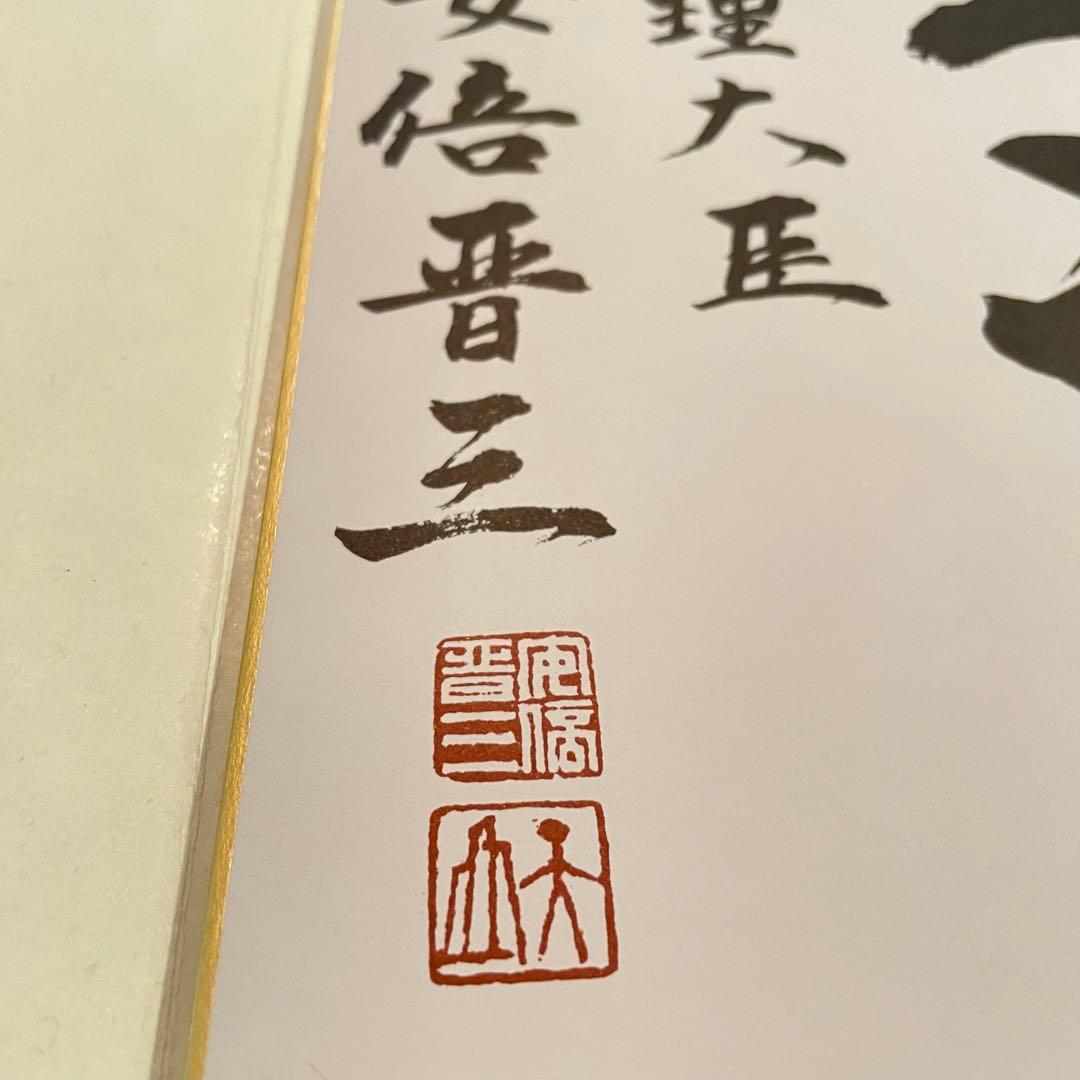 理大臣
安倍晋三
安倍
晋三